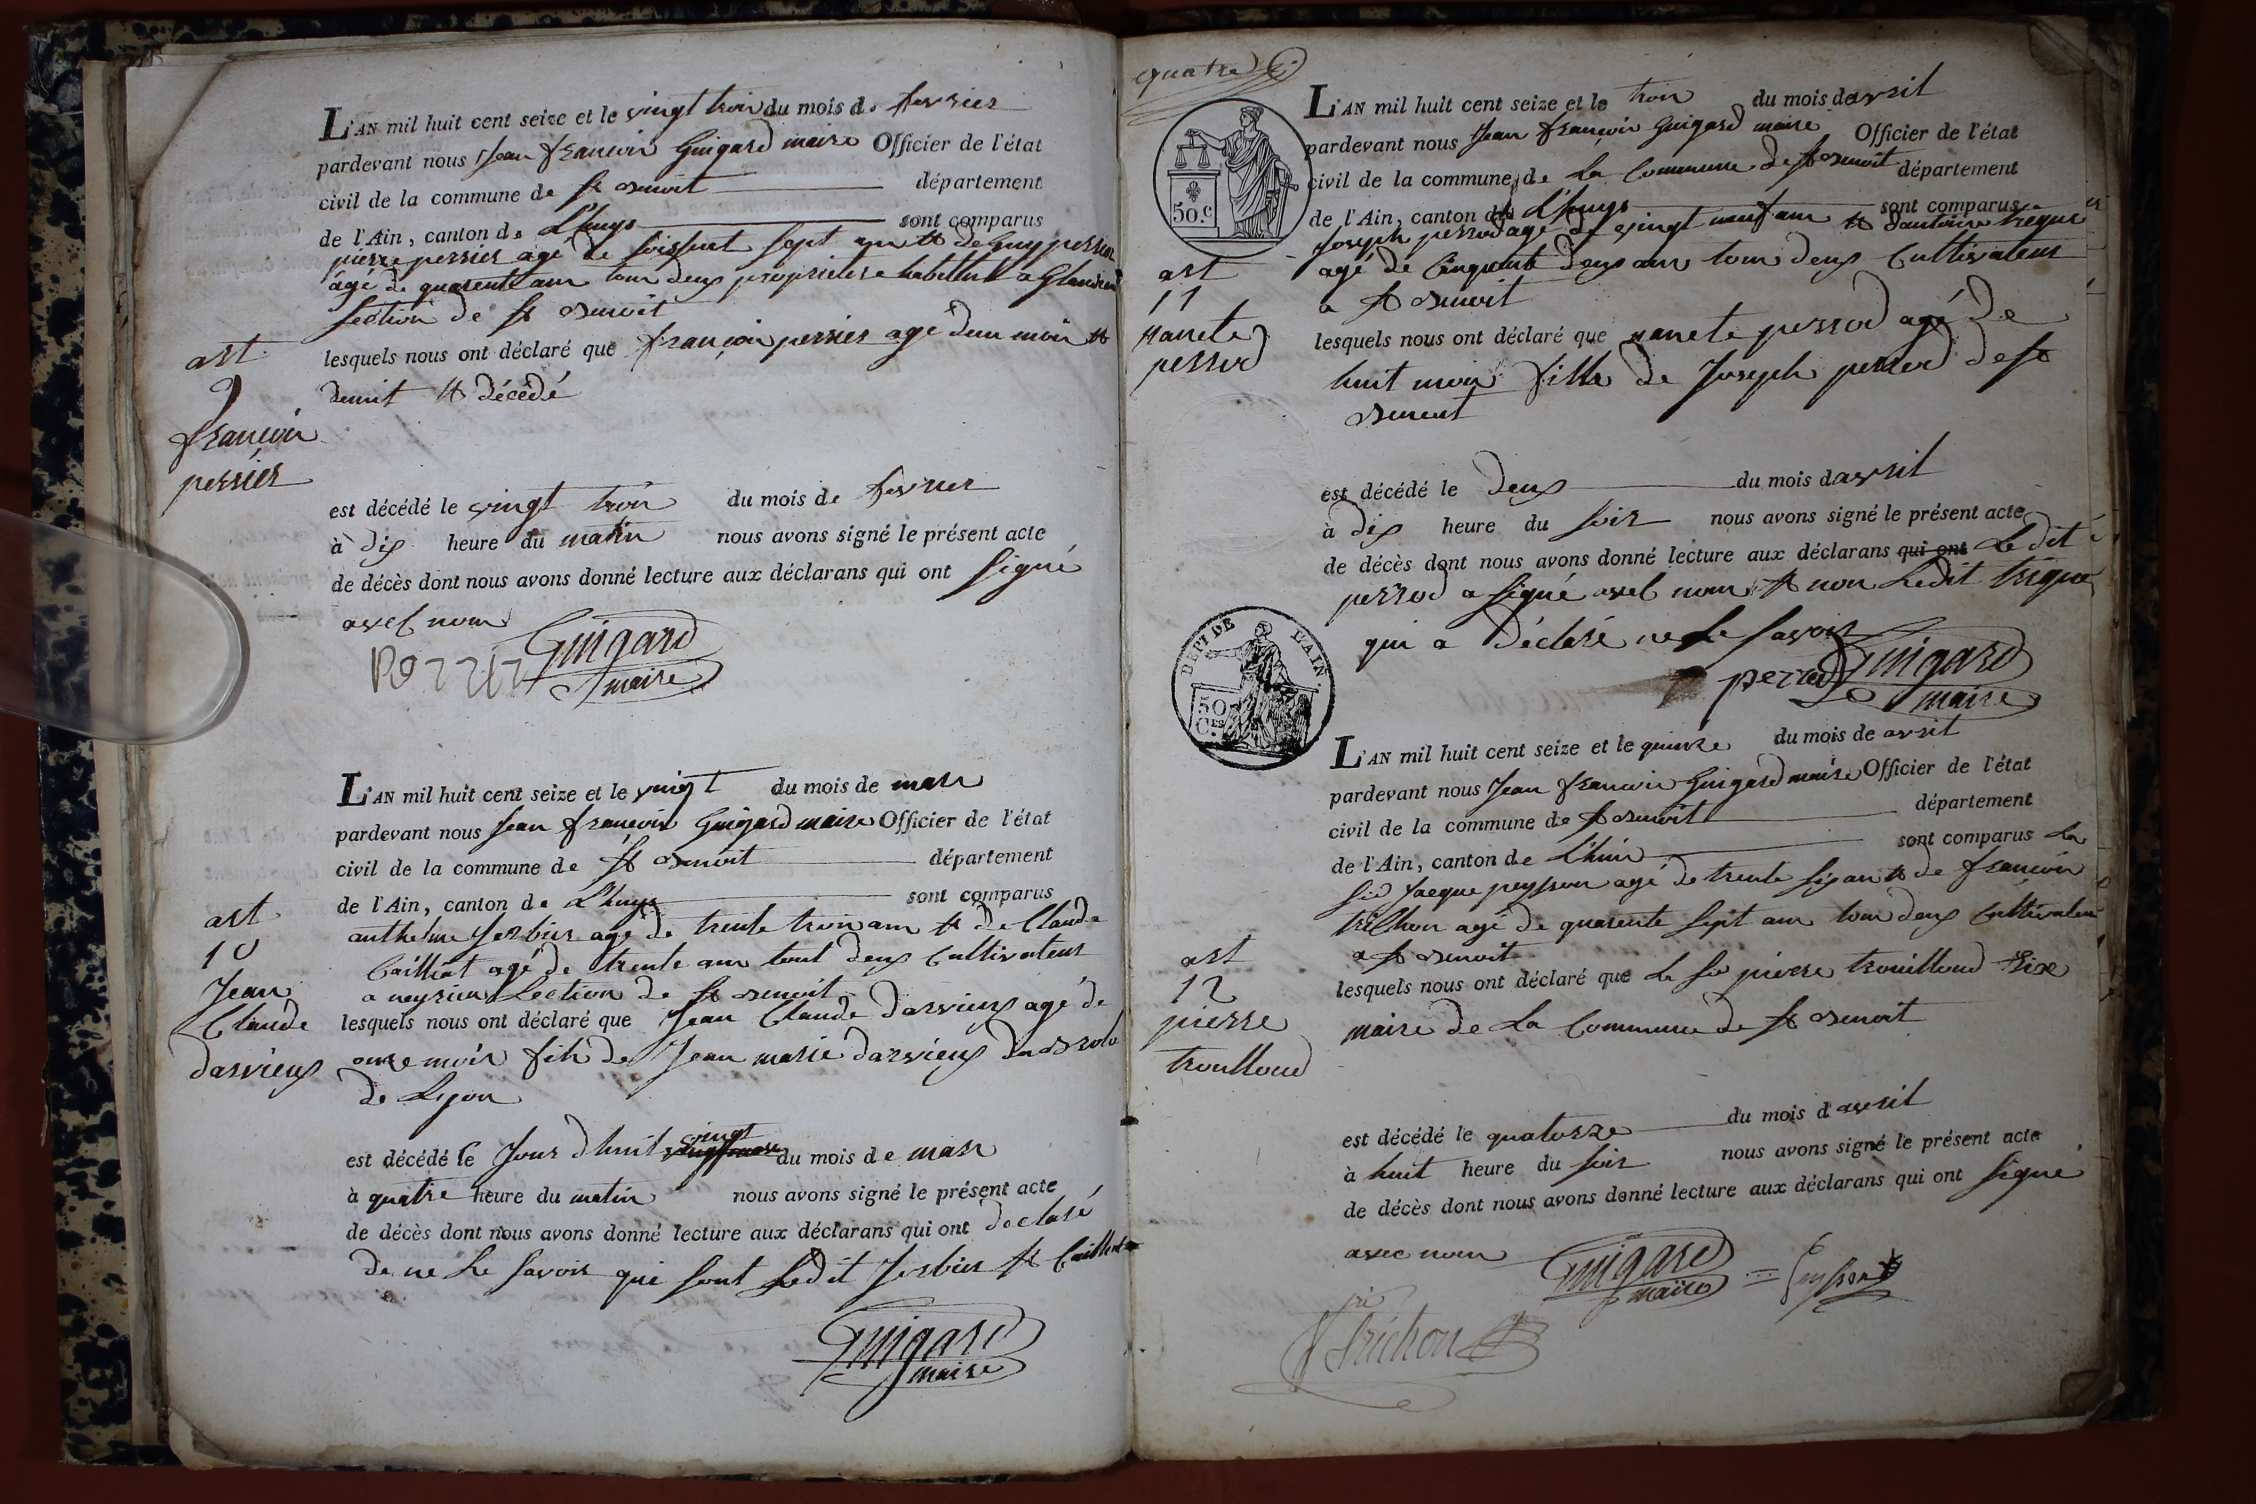 L'AN mil huit cent seize et le vingt trois du mois de fevrier
pardevant nous Jean françois Guigard maire Officier de l'état
civil de la commune de st Benoit département
de l'Ain, canton de L'huys sont comparus
pierre perrier agé de soissent sept ans et de Guy perrier
âgé de quarente ans tous deux propriétere habittent a Glandieu
section de st Benoit
art
9
françois
perrier
lesquels nous ont déclaré que françois perrier agé d'un mois et
demit et décédé
est décédé le vingt trois du mois de fevrier
à dix heure du matin nous avons signé le présent acte
de décès dont nous avons donné lecture aux déclarans qui ont signé
avec nous
Guigard
maire
L'AN mil huit cent seize et le vingt du mois de mars
pardevant nous Jean françois Guigard maire Officier de l'état
civil de la commune de st Benoit département
de l'Ain, canton de L'huys sont comparus
anthelme Jerbier agé de trente trois ans et de Claude
Cailliat agé de trente ans tout deux Cultivateur
a neyrieu Section de st Benoit
art
10
Jean
Claude
darvieux
lesquels nous ont déclaré que Jean Claude Darvieux agé de
onze mois fils de Jean marie darvieux
de Lyon
est décédé le Jour d'huit vingt du mois de mars
à quatre heure du matin nous avons signé le présent acte
de décès dont nous avons donné lecture aux déclarans qui ont déclaré
de ne Le savoir qui sont Ledit Jerbier et Cailliat
Guigard
maire
quatre
50.c
L'AN mil huit cent seize et le trois du mois d'avril
pardevant nous Jean françois Guigard maire Officier de l'état
civil de la commune de La Commune de st Benoit département
de l'Ain, canton de L'huys sont comparus
Joseph perrod agé de vingt neuf ans et d'antoine
agé de Cinquent deux ans tous deux Cultivateur
a st Benoit
art
11
nanete
perrod
lesquels nous ont déclaré que nanete perrod agé de
huit mois fille de Joseph perrod de st
Benoit
est décédé le deux du mois d'avril
à dix heure du soir nous avons signé le présent acte
de décès dont nous avons donné lecture aux déclarans qui ont Ledit
perrod a signé avec nous et non Ledit
qui a Déclaré ne Le savoir
perrod
Guigard
maire
DEPT DE L'AIN.
50
CES
L'AN mil huit cent seize et le quinze du mois de avril
pardevant nous Jean françois Guigard maire Officier de l'état
civil de la commune de st Benoit département
de l'Ain, canton de L'huis sont comparus Le
Sr Jacque peysson agé de trente six ans et de françois
trichon agé de quarente sept ans tous deux Cultivateur
a st Benoit
art
12
pierre
trouilloud
lesquels nous ont déclaré que Le Sr pierre trouilloud
maire de La Commune de st Benoit
est décédé le quatorze du mois d'avril
à huit heure du soir nous avons signé le présent acte
de décès dont nous avons donné lecture aux déclarans qui ont signé
avec nous
Guigard
maire
Peysson
Trichon